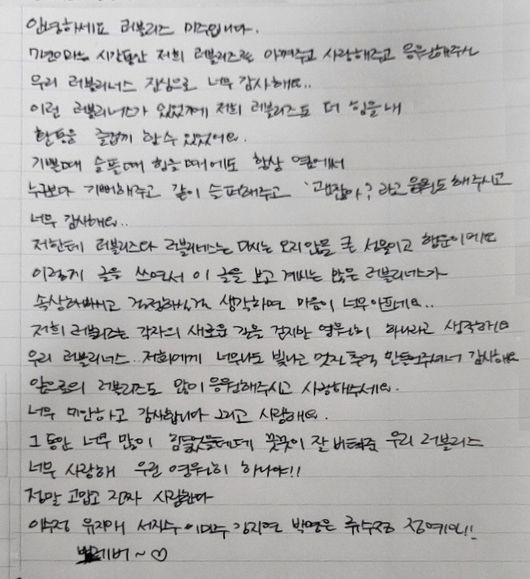 안녕하세요 러블리즈 미주입니다.
7년이라는 시간동안 저희 러블리즈를 아껴주고 사랑해주고 응원해주신
우리 러블리너스 진심으로 너무 감사해요..
이런 러블리너스가 있었기에 저희 러블리즈도 더 힘을 내
활동을 즐겁게 할 수 있었어요.
기쁠때 슬플때 힘들때에도 항상 옆에서
누구보다 기뻐해주고 같이 슬퍼해주고 '괜찮아? 라고 응원도 해주시고
너무 감사해요..
저한테 러블리즈와 러블리너스는 다시는 오지않을 큰 선물이고 행운이에요
이렇게 글을 쓰면서 이 글을 보고 계시는 많은 러블리너스가
속상해하고 걱정하실걸 생각하면 마음이 너무 아프네요..
저희 러블리즈는 각자의 새로운 길을 걷지만 영원히 하나라고 생각해요
우리 러블리너스.. 저희에게 너무나도 빛나고 멋진 추억 만들어주셔서 감사해요
앞으로의 러블리즈도 많이 응원해주시고 사랑해주세요.
너무 미안하고 감사합니다 그리고 사랑해요.
그 동안 너무 많이 힘들었을텐데 꿋꿋이 잘 버텨준 우리 러블리즈
너무 사랑해 우린 영원히 하나야!!
정말 고맙고 진짜 사랑한다
이수정 유지애 서지수 이미주 김지연 박명은 류수정 정예인!!
뽀에버~♡